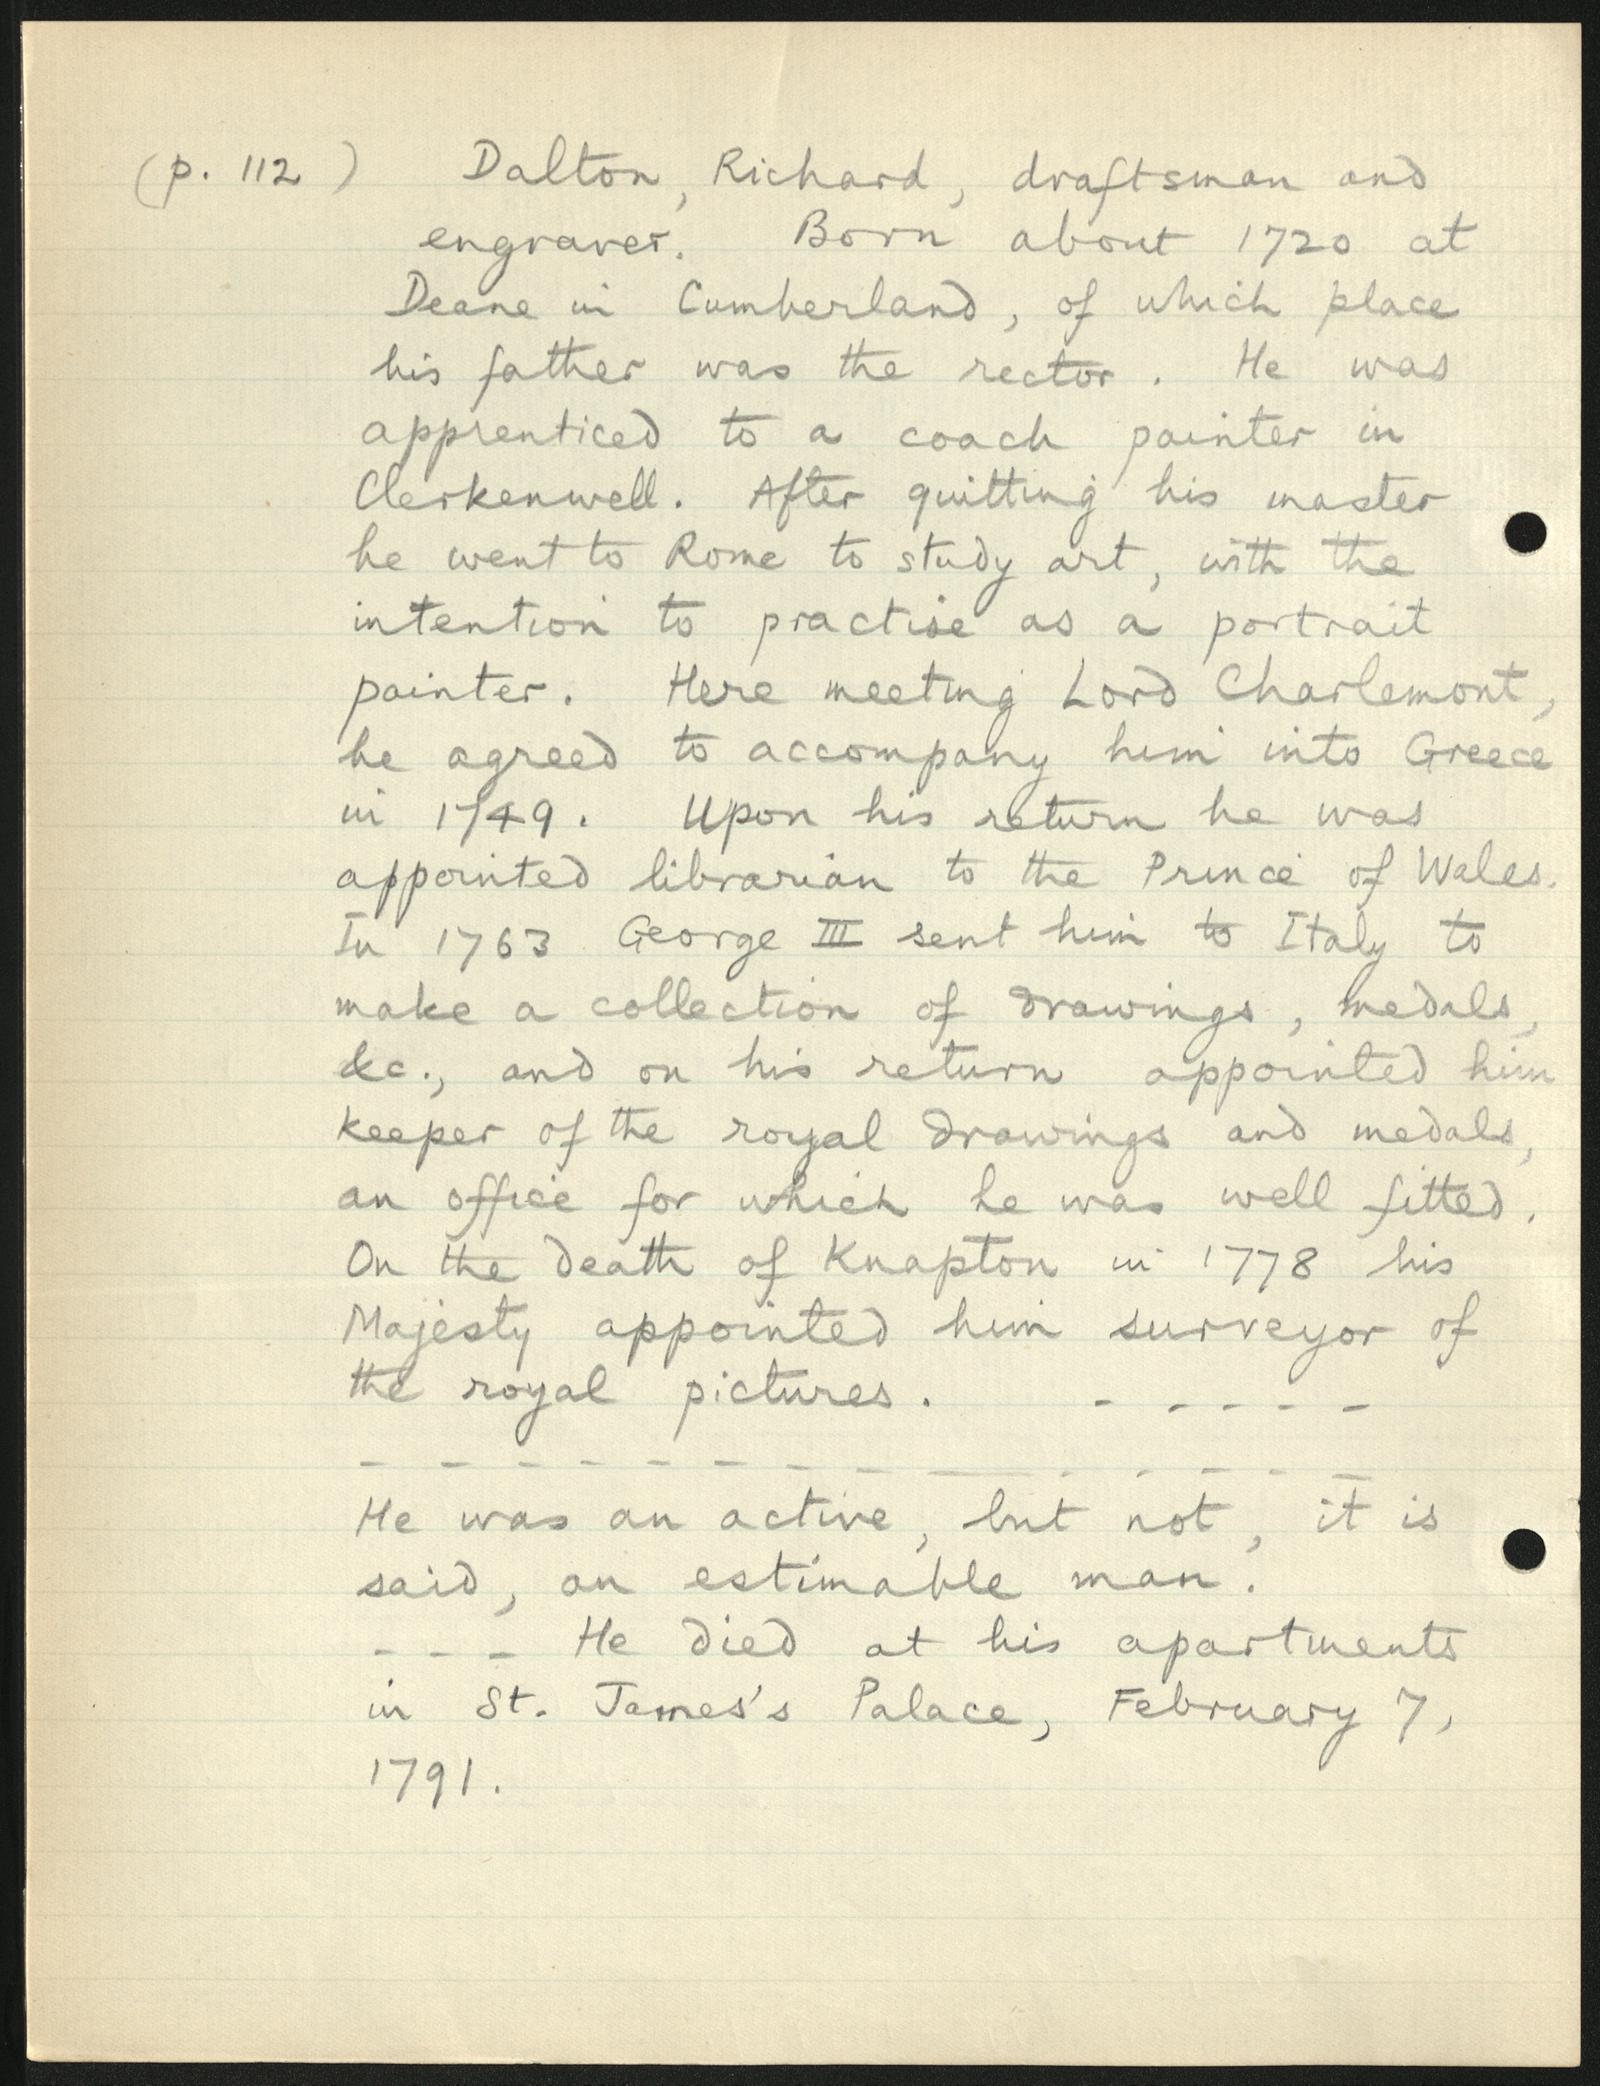 (p. 112) Dalton, Richard, draftsman and
engraver. Born about 1720 at
Deane in Cumberland, of which place
his father was the rector. He was
apprenticed to a coach painter in
Clerkenwell. After quitting his master
he went to Rome to study art, with the
intention to practise as a portrait
painter. Here meeting Lord Charlemont,
he agreed to accompany him into Greece
in 1749. Upon his return he was
appointed librarian to the Prince of Wales.
In 1763 George III sent him to Italy to
make a collection of drawings, medals,
&c., and on his return appointed him
keeper of the royal drawings and medals,
an office for which he was well fitted.
On the death of Knapton in 1778 his
Majesty appointed him surveyor of
the royal pictures. - - - - -
- - - - - - - - - - - - - -
He was an active, but not, it is
said, an estimable man.
- - - He died at his apartments
in St. James's Palace, February 7,
1791.